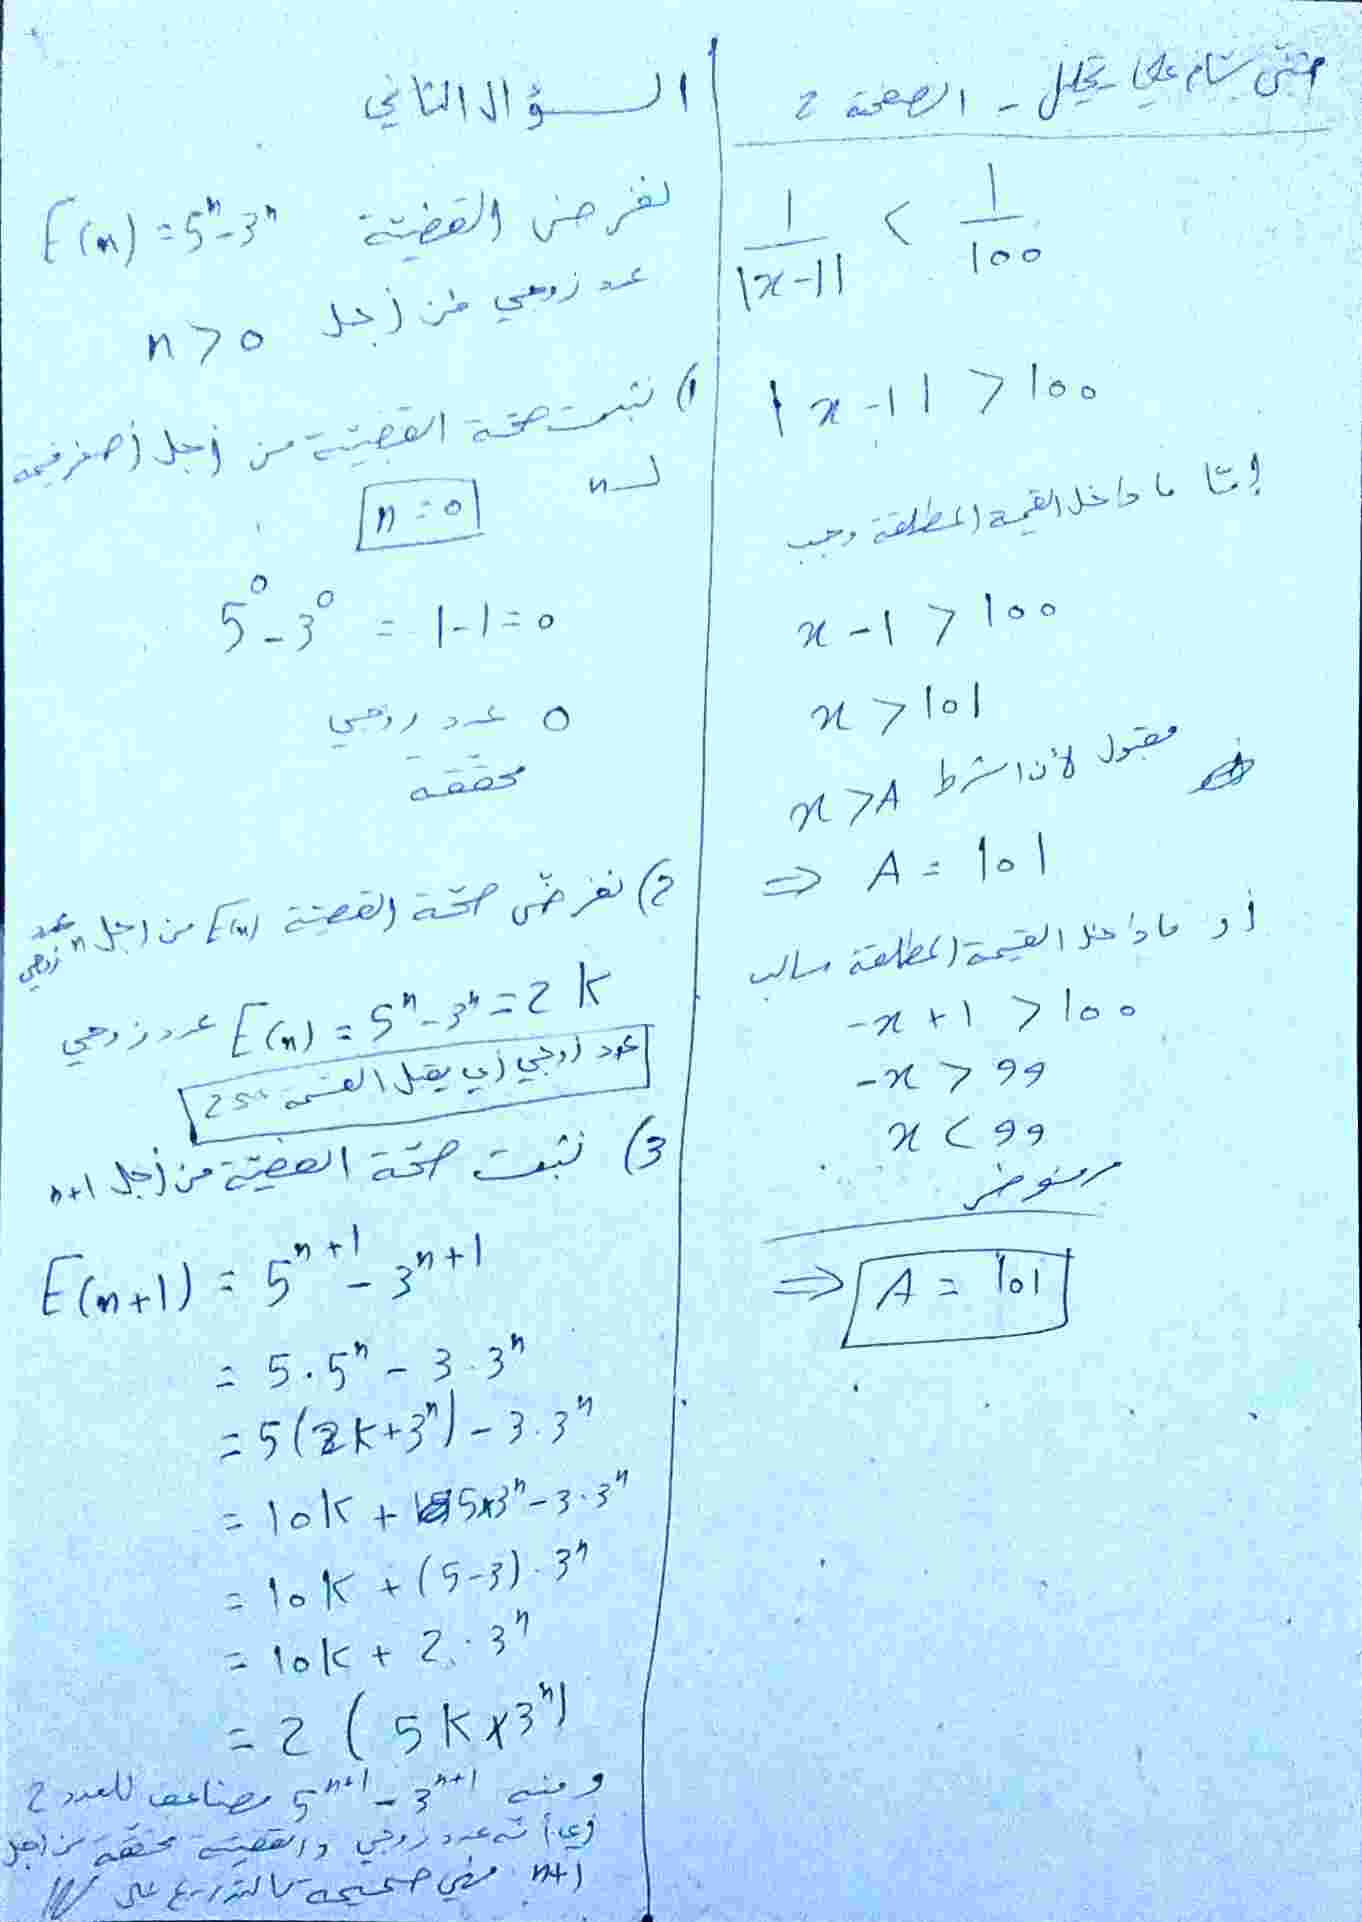 تحليل - الصفحة 2
1/|x-1| < 1/100
|x-1| > 100
إمّا ما داخل القيمة المطلقة موجب
x-1 > 100
x > 101
مقبول لأن الشرط x > A
⇒ A = 101
أو ماداخل القيمة المطلقة سالب
-x+1 > 100
-x > 99
x < 99
مرفوض
⇒ A = 101
السؤال الثاني
نفرض القضيّة E(n) = 5ⁿ-3ⁿ
عدد زوجي من أجل n > 0
1) نثبت صحّة القضيّة من أجل أصغر قيمة
لـ n
n = 0
5⁰ - 3⁰ = 1-1 = 0
0 عدد زوجي
محققة
2) نفرض صحّة القضيّة E(n) من اجل n عدد زوجي
E(n) = 5ⁿ-3ⁿ = 2k عدد زوجي
عدد زوجي أي يقبل القسمة على 2
3) نثبت صحّة القضيّة من أجل n+1
E(n+1) = 5ⁿ⁺¹ - 3ⁿ⁺¹
= 5.5ⁿ - 3.3ⁿ
= 5(2k+3ⁿ) - 3.3ⁿ
= 10k + 5×3ⁿ - 3.3ⁿ
= 10k + (5-3).3ⁿ
= 10k + 2.3ⁿ
= 2(5k×3ⁿ)
ومنه 5ⁿ⁺¹ - 3ⁿ⁺¹ مضاعف للعدد 2
أي أنّه عدد زوجي والقضيّة محققة من أجل
n+1 فهي صحيحة بالتدريج على N